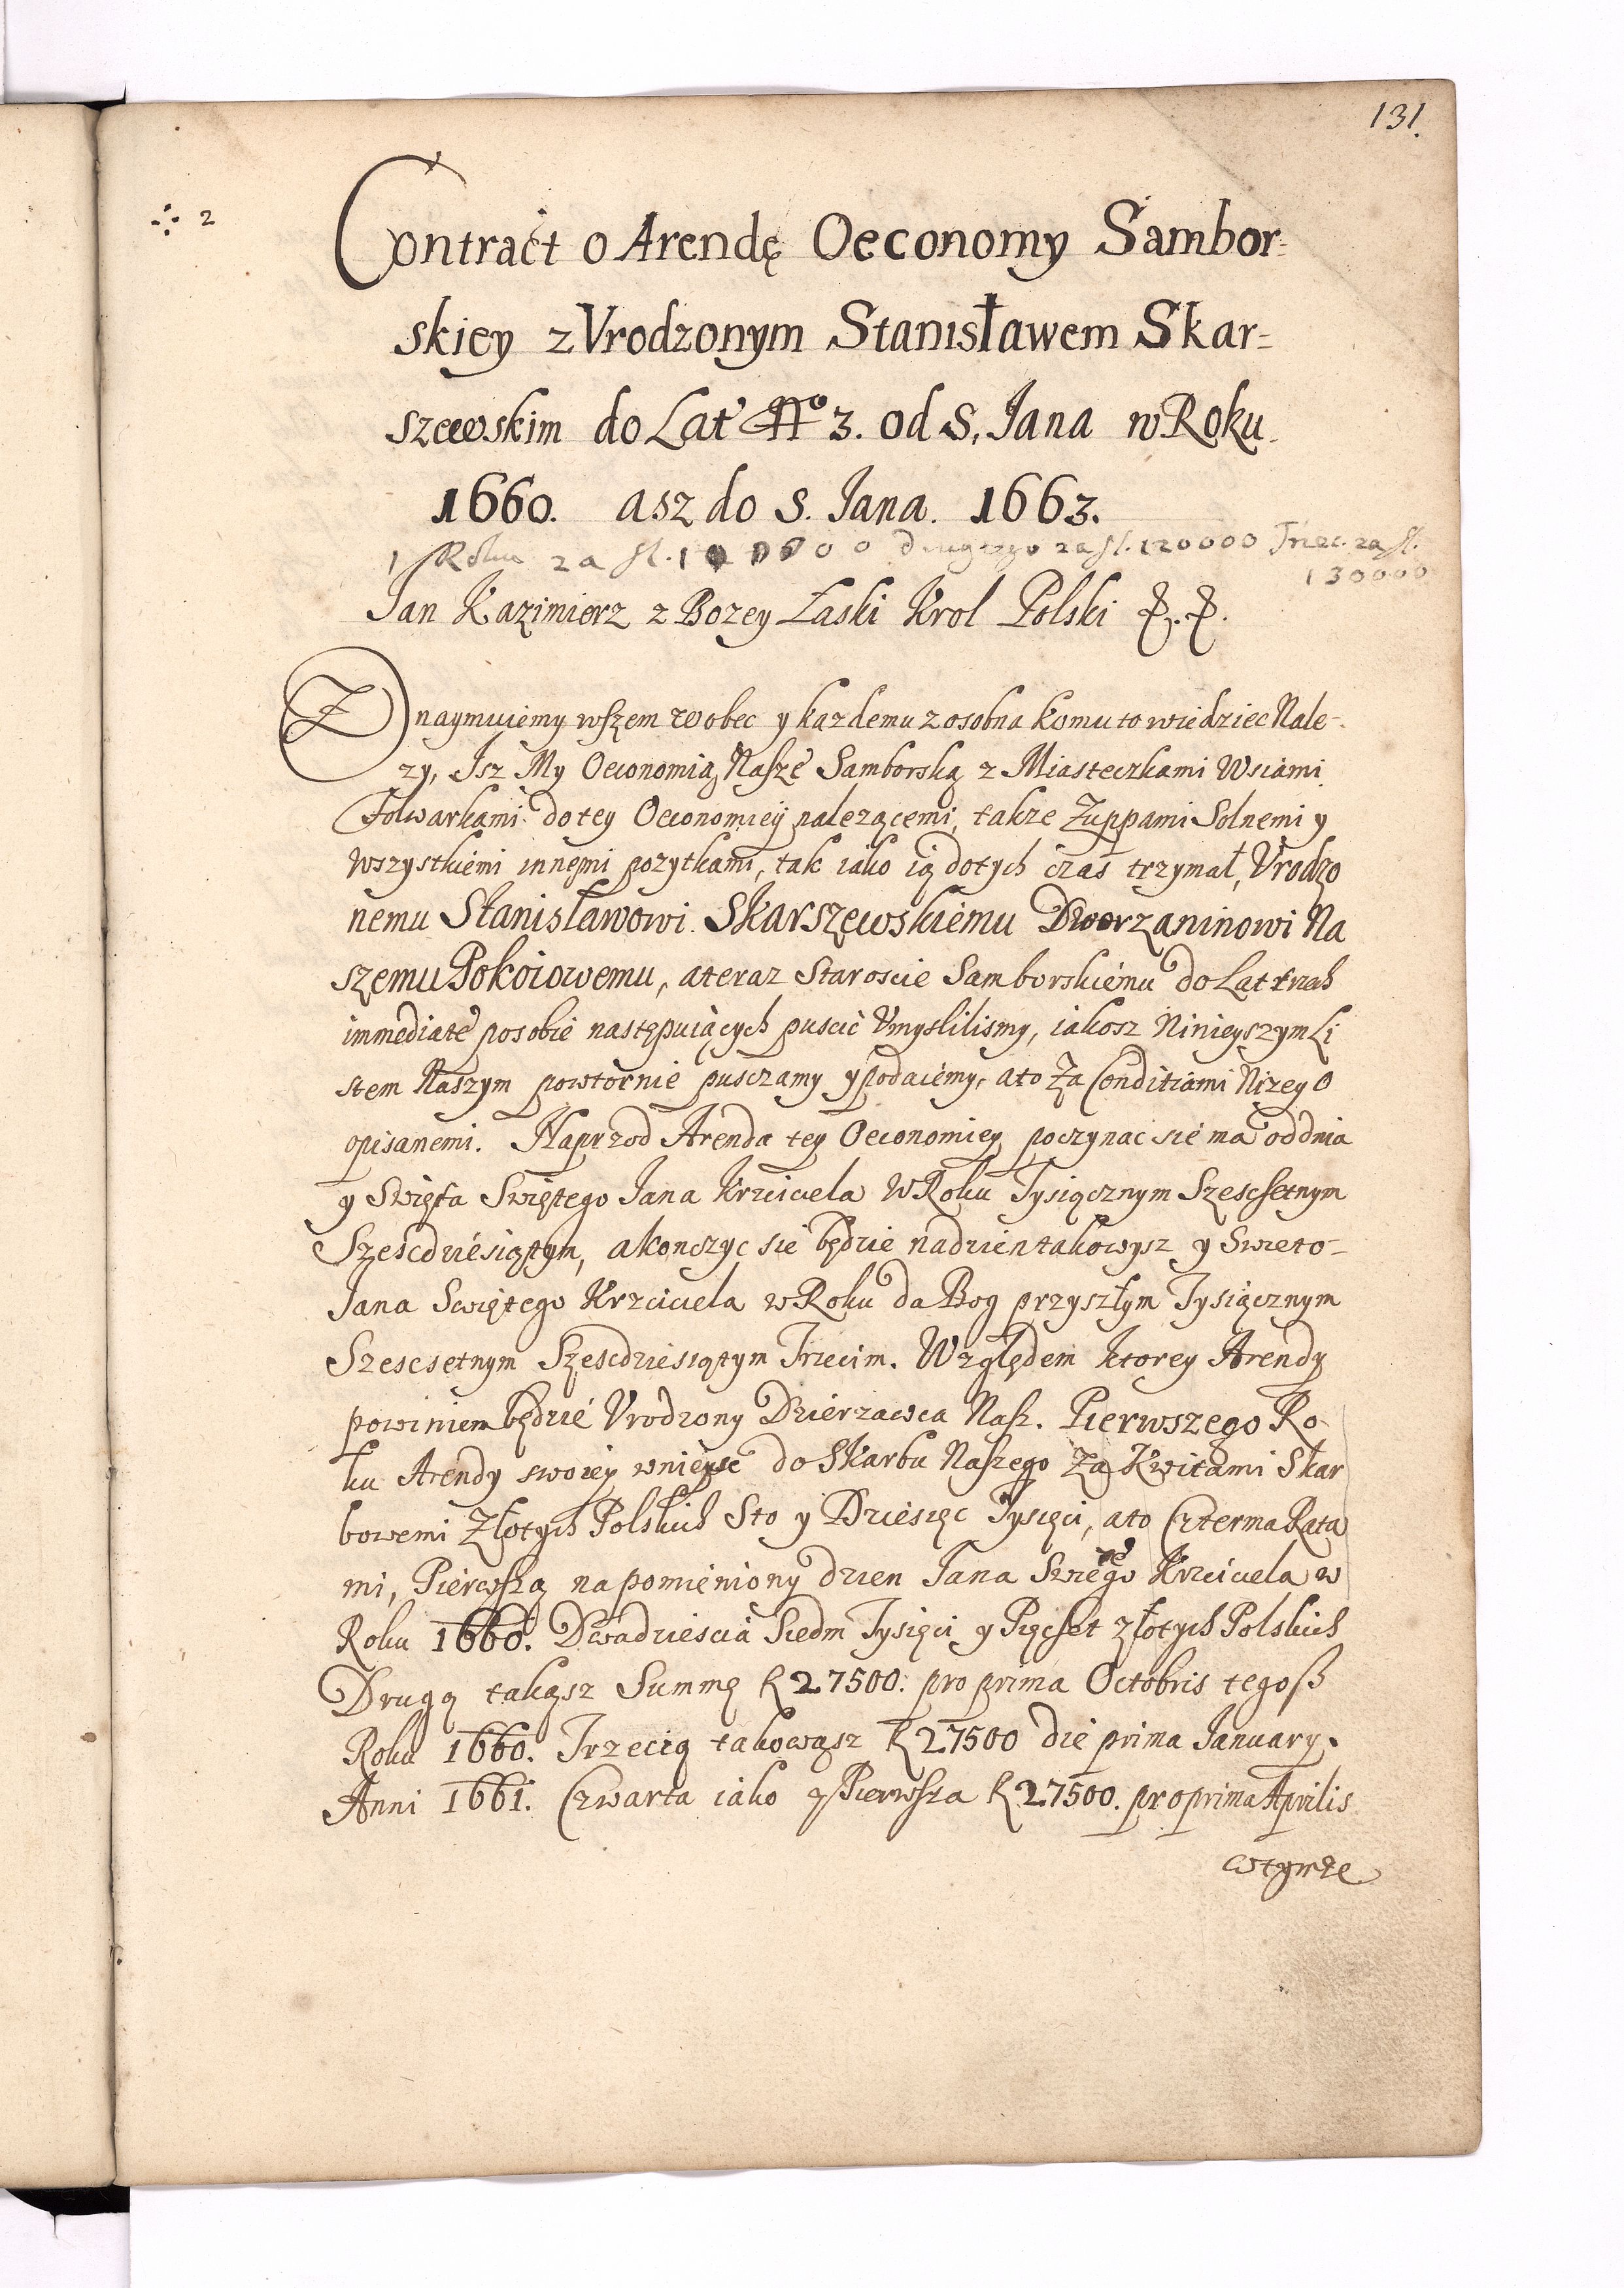 131.
2
Contract o Arendę Oeconomy Sambor=
skiey z Vrodzonym Stanisławem Skar=
szewskim do Lat No 3. od S. Jana w Roku
1660. asz do S. Jana. 1663.
1 Roku za fl. 110000 drugiego za fl. 120000 Trzec. za fl.
130000
Jan Kazimierz z Bozey Łaski Krol Polski
Znaymuiemy wszem wobec y kazdemu z osobna komu to wiedziec Nale-
zy, Isz My Oeconomią Naszę Samborską z Miasteczkami Wsiami
Folwarkami do tey Oeconomiey nalezącemi, takze Zuppami Solnemi y
wszystkiemi innemi pozytkami, tak iako ią do tych czas trzymał, Vrodzo
nemu Stanisławowi Skarszewskiemu Dworzaninowi Na
szemu Pokoiowemu, a teraz Staroscie Samborskiemu do Lat trzech
immediate po sobie następuiących puscic Vmyslilismy, iakosz Ninieyszym Li
stem Naszym powtornie pusczamy y podaiemy, a to Za Conditiami Nizey O
opisanemi. Naprzod Arenda tey Oeconomiey poczynac sie ma od dnia
y Swięta Swiętego Jana Krzciciela W Roku Tysiącznym Szescsetnym
Szescdziesiątym, a konczyc sie będzie na dzien takowysz y Swieto-
Jana Swiętego Krzciciela w Roku da Bog przyszłym Tysiącznym
Szescsetnym Szescdziesiątym Trzecim. Względem ktorey Arendy
powinien będzie Vrodzony Dzierzawca Nasz. Pierwszego Ro
ku Arendy swoiey wnieysc do Skarbu Naszego Za Kwitami Skar
bowemi Złotych Polskich Sto y Dziesięc Tysięci, a to Czterma Rata
mi, Pierwszą na pomieniony dzien Jana Swego Krzciciela w
Roku 1660. Dwadziescia Siedm Tysięci y Pięcset złotych Polskich
Drugą takąsz Summę fl 27500. pro prima Octobris tegosz
Roku 1660. Trzecią takowąsz fl 27500 die prima January.
Anni 1661. Czwarta iako y Pierwsza fl 27500. pro prima Aprilis
wtymze